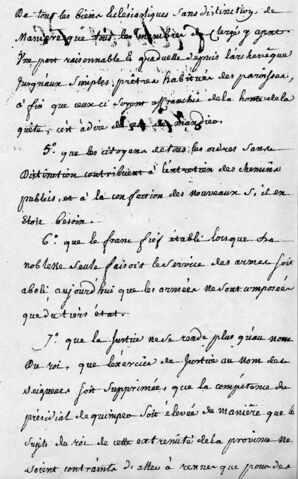 De tous les biens Ecleciastiques sans distinction, de
Maniere que tous les membres du Clergé y ayent
Une part raisonnable le quadruelle depuis l'archevêque
Jusqu'aux simples prêtres habitués des paroisses,
a fin que ceux ci soyent affranchis de la honte de la
quête, c'est à dire de mandier.
5.° que les citoyens de tous les ordres sans
Distinction contribuent à l'entretien des chemins
publics, et à la confection des nouveaux s'il en
étoit besoin.
6.° que le franc fief établi lorsque la
noblesse seule faisoit le service des armes soit
aboli aujourd'hui que les armées ne sont composées
que du tiers état.
7.° que la Justice ne se rende plus qu'au nom
Du roi, que l'exercice de Justice au nom des
seigneurs soit supprimée, que la compétence du
présidial de quimper soit élevée de manière que les
sujets du roi de cette extremité de la province ne
soient contraints d'aller à rennes que pour des